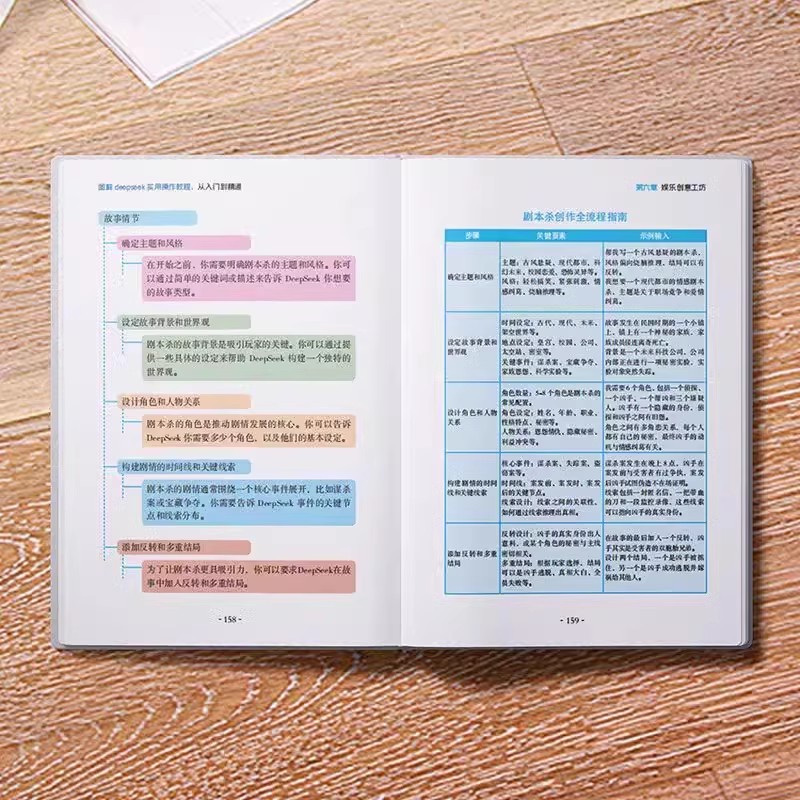 图解 deepseek 实用操作教程，从入门到精通
故事情节
确定主题和风格
在开始之前，你需要明确剧本杀的主题和风格。你可
以通过简单的关键词或描述来告诉 DeepSeek 你想要
的故事类型。
设定故事背景和世界观
剧本杀的故事背景是吸引玩家的关键。你可以通过提
供一些具体的设定来帮助 DeepSeek 构建一个独特的
世界观。
设计角色和人物关系
剧本杀的角色是推动剧情发展的核心。你可以告诉
DeepSeek 你需要多少个角色，以及他们的基本设定。
构建剧情的时间线和关键线索
剧本杀的剧情通常围绕一个核心事件展开，比如谋杀
案或宝藏争夺。你需要告诉 DeepSeek 事件的关键节
点和线索分布。
添加反转和多重结局
为了让剧本杀更具吸引力，你可以要求DeepSeek在故
事中加入反转和多重结局。
- 158 -
第六章 娱乐创意工坊
剧本杀创作全流程指南
步骤 关键要素 示例输入
确定主题和风格
主题：古风悬疑、现代都市、科
幻未来、校园恋爱、恐怖灵异等。
风格：轻松搞笑、紧张刺激、情
感纠葛、烧脑推理等。
帮我写一个古风悬疑的剧本杀，
风格偏向烧脑推理，结局可以有
反转。
我想要一个现代都市的情感剧本
杀，主题是关于职场竞争和爱情
纠葛。
设定故事背景和
世界观
时间设定：古代、现代、未来、
架空世界等。
地点设定：皇宫、校园、公司、
太空站、密室等。
关键事件：谋杀案、宝藏争夺、
家族恩怨、科学实验等。
故事发生在民国时期的一个小镇
上，镇上有一个神秘的家族，家
族成员接连离奇死亡。
背景是一个未来科技公司，公司
内部正在进行一项秘密实验，实
验对象突然失踪。
设计角色和人物
关系
角色数量：5-8 个角色是剧本杀的
常见配置。
角色设定：姓名、年龄、职业、
性格特点、秘密等。
人物关系：恩怨情仇、隐藏秘密、
利益冲突等。
我需要 6 个角色，包括一个侦探、
一个凶手、一个帮凶和三个嫌疑
人。凶手有一个隐藏的身份，侦
探和凶手之间有旧怨。
角色之间有多角恋关系，每个人
都有自己的秘密，最终凶手的动机
与情感纠葛有关。
构建剧情的时间
线和关键线索
核心事件：谋杀案、失踪案、盗
窃案等。
时间线：案发前、案发时、案发
后的关键节点。
线索设计：线索之间的关联性，
如何通过线索推理出真相。
谋杀案发生在晚上 8 点，凶手在
案发前与受害者有过争执，案发
后凶手试图伪造不在场证明。
线索包括一封匿名信、一把带血
的刀和一段监控录像，这些线索
可以指向凶手的真实身份。
添加反转和多重
结局
反转设计：凶手的真实身份出人
意料，或某个角色的秘密与主线
密切相关。
多重结局：根据玩家选择，结局
可以是凶手逃脱、真相大白、全
员失败等。
在故事的最后加入一个反转，凶
手其实是受害者的双胞胎兄弟。
设计两个结局，一个是凶手被抓
住，另一个是凶手成功逃脱并嫁
祸给其他人。
- 159 -